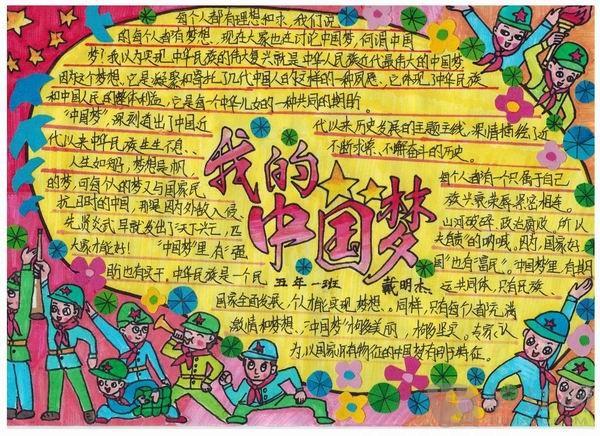 每个人都有理想和追求,我们说
的每个人都有梦想。现在大家也在讨论中国梦,何谓中国
梦?我以为实现中华民族的伟大复兴就是中华人民族近代最伟大的中国梦
因为这个梦想,它是凝聚和寄托了几代中国人的这样的一种夙愿,它体现中华民族
和中国人民的整体利益,它是每个中华儿女的一种共同的期盼。
"中国梦"深刻道出了中国近
代以来历史发展的主题主线,深情描绘了近
代以来中华民族生生不息、
不断求索、不懈奋斗的历史。
人生如船,梦想是帆,
每个人都有一个只属于自己
的梦,可每个人的梦又与国家民
族兴衰荣辱紧密相连。
抗日时的中国,那是因外敌入侵、
山河破碎、政治腐败,所以
先贤炎武早就发出了"天下兴亡,匹
夫有责"的呐喊。因为,国家好
大家才能好!"中国梦里"有"强
国"也有"富民"。"中国梦里"有期
盼也有实干,中华民族是一个
运共同体,只有民族
我的
中国梦
五年一班 戴明杰
国家全面发展,个人才能实现梦想。同样,只有每个人都充满
激情和梦想、"中国梦"才够美丽,才够坚实。专家认
为,以国家